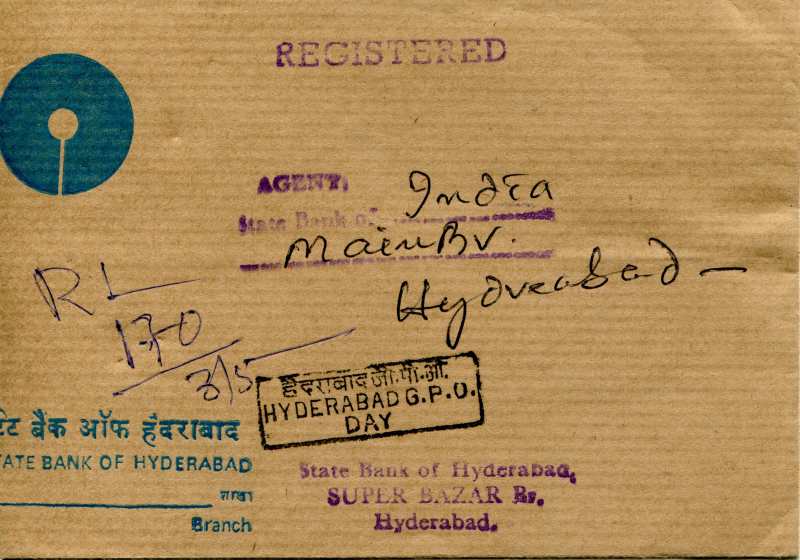 REGISTERED
AGENT:
State Bank of India
Main Br.
Hyderabad —
RL
170
3/5
हैदराबाद जी.पी.ओ.
HYDERABAD G.P.O.
DAY
टेट बैंक ऑफ हैदराबाद
TATE BANK OF HYDERABAD
शाखा
Branch
State Bank of Hyderabad,
SUPER BAZAR Br.
Hyderabad.